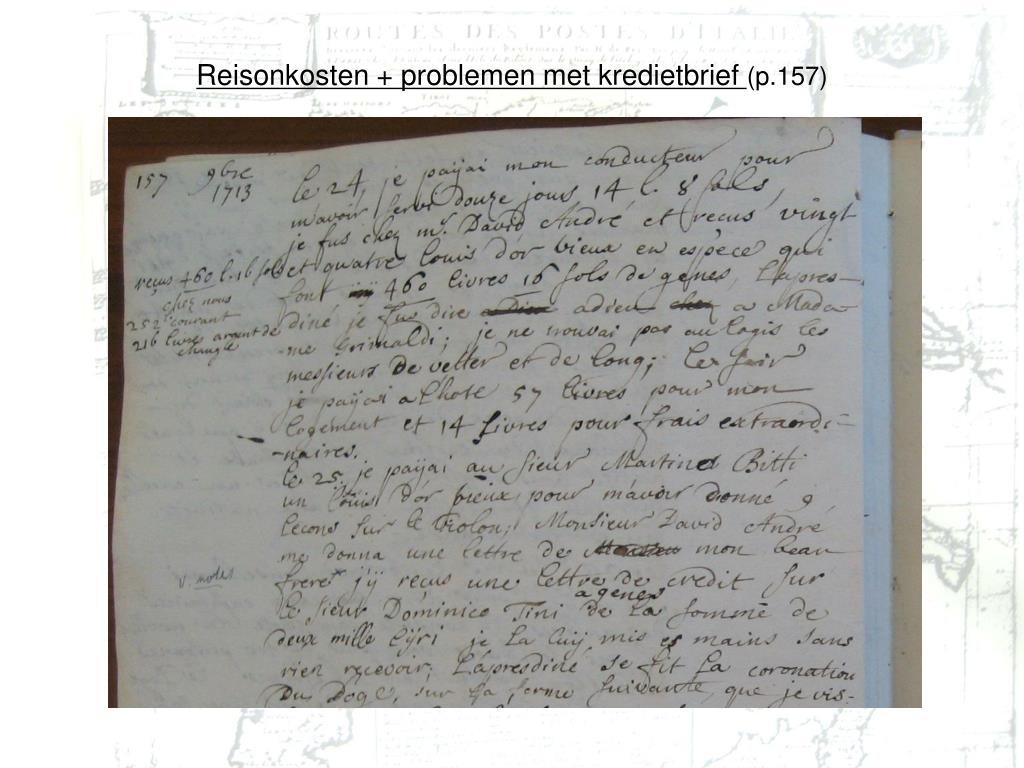 ROUTES DES POSTES D'ITALIE
Reisonkosten + problemen met kredietbrief (p.157)
157 9bre
1713
le 24, je paÿai mon conducteur pour
m'avoir servi douze jous 14 l. 8 sols,
je fus chez mr. David André et recus vingt
et quatre louis d'or vieux en espece qui
font 460 livres 16 sols de genes, l'apres-
diné je fus dire adieu a Mada-
me Grimaldi; je ne trouvai pas au logis les
messieurs De vetter et de long; le soir
je paÿai a lhote 57 livres pour mon
logement et 14 livres pour frais extraordi-
-naires.
le 25. je paÿai au sieur Martino Bitti
un louis d'or vieux pour m'avoir donné 9
lecons sur le violon; Monsieur David André
me donna une lettre de mon beau
frere j'ÿ recus une lettre de credit sur
a genes
le sieur Dominico Tini de la somme de
deux mille lÿri je la luÿ mis es mains sans
rien recevoir; l'apresdiné se fit la coronation
Du Doge, sur la forme suivante, que je vis-
recus 460 l. 16 sols
chez nous
252 courant
216 livres argent de
change
v. notes